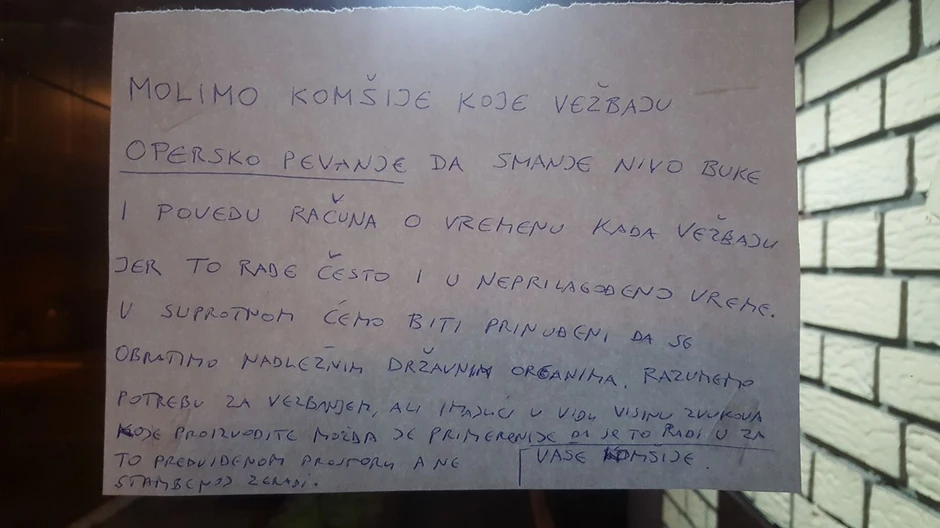 MOLIMO KOMŠIJE KOJE VEŽBAJU
OPERSKO PEVANJE DA SMANJE NIVO BUKE
I POVEDU RAČUNA O VREMENU KADA VEŽBAJU
JER TO RADE ČESTO I U NEPRILAGOĐENO VREME.
U SUPROTNOM ĆEMO BITI PRINUĐENI DA SE
OBRATIMO NADLEŽNIM DRŽAVNIM ORGANIMA. RAZUMEMO
POTREBU ZA VEZBANJEM, ALI IMAJUĆI U VIDU VISINU ZVUKOVA
KOJE PROIZVODITE MOŽDA JE PRIMERENIJE DA JE TO RADI U ZA
TO PREDVIĐENOM PROSTORU A NE
STAMBENOJ ZGRADI.
VAŠE KOMŠIJE.